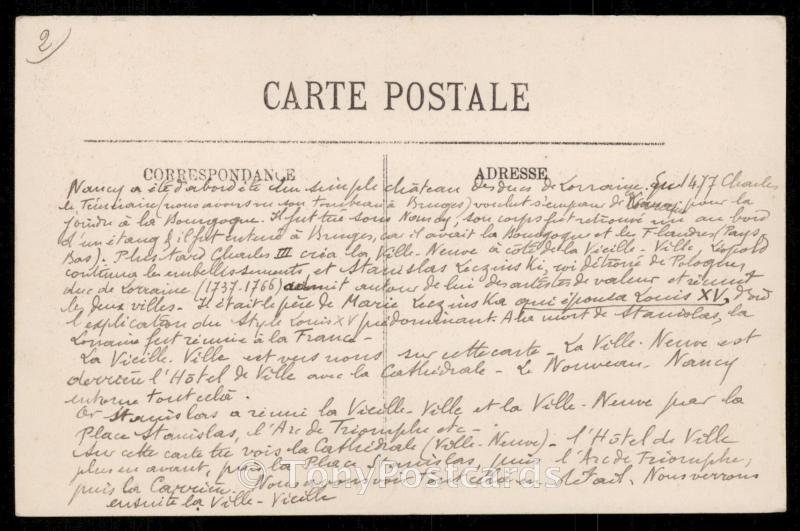 2)
CARTE POSTALE
CORRESPONDANCE
ADRESSE
Nancy a été d'abord été un simple château des ducs de Lorraine. En 1477 Charles
le Téméraire (nous avons vu son tombeau à Bruges) voulut s'emparer de pour la
joindre à la Bourgogne. Il fut tué sous Nancy, son corps fut retrouvé au bord
d'un étang & il fut enterré à Bruges, car il avait la Bourgogne et les Flandres (Pays-
Bas). Plus tard Charles III créa la Ville-Neuve à côté de la Vieille-Ville, Léopold
continua les embellissements, et Stanislas Leczinski, roi détrôné de Pologne,
duc de Lorraine (1737-1766) admit autour de lui des artistes de valeur et réunit
les deux villes - Il était le père de Marie Leczinska qui épousa Louis XV, d'où
l'explication du Style Louis XV prédominant. A la mort de Stanislas, la
Lorraine fut réunie à la France -
La Vieille-Ville est vers nous sur cette carte - La Ville-Neuve est
derrière l'Hôtel de Ville avec la Cathédrale - Le Nouveau-Nancy
entoure tout celà.
Or Stanislas a réuni la Vieille-Ville et la Ville-Neuve par la
Place Stanislas, l'Arc de Triomphe etc -
Sur cette carte tu vois la Cathédrale (Ville-Neuve) - l'Hôtel de Ville
plus en avant, puis la Place Stanislas, puis l'Arc de Triomphe,
puis la Carrière. Nous voir tout cela en détail. Nous verrons
ensuite la Ville-Vieille
© TonyPostcards